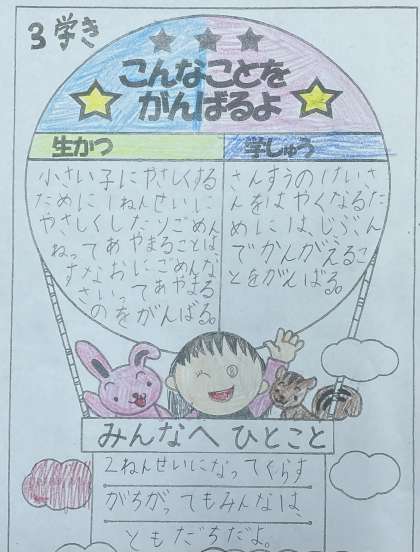 3学き
こんなことを
がんばるよ
生かつ
学しゅう
小さい子にやさしくする
ために1ねんせいに
やさしくしたりごめん
ねってあやまることは、
すなおにごめんな
さいってあやまる
のをがんばる。
さんすうのけいさ
んをはやくなるた
めには、じぶん
でかんがえるこ
とをがんばる。
みんなへひとこと
2ねんせいになってくらす
がちがってもみんなは、
ともだちだよ。